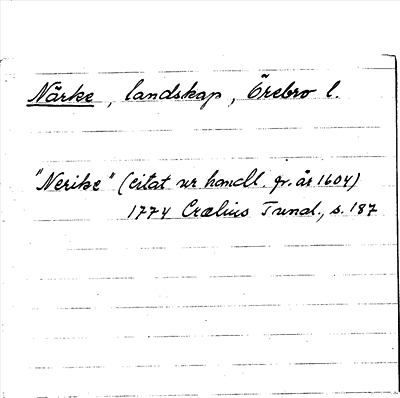 Närke, landskap, Örebro l.
"Nerike" (citat ur handl. fr. år 1604)
1774 Crælius Tund., s. 187